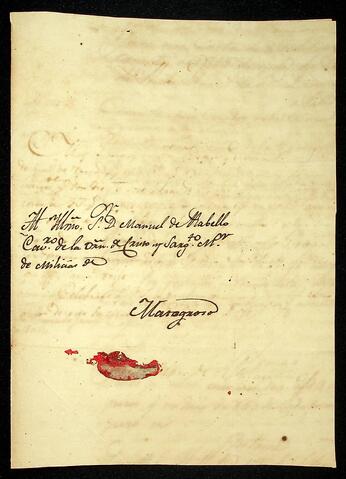 Al Illmo. Sr. Dn. Manuel de Rabello
Cavro. de la Orn. de Cristo y Sargto. Mr.
de Milicias de
Matagroso